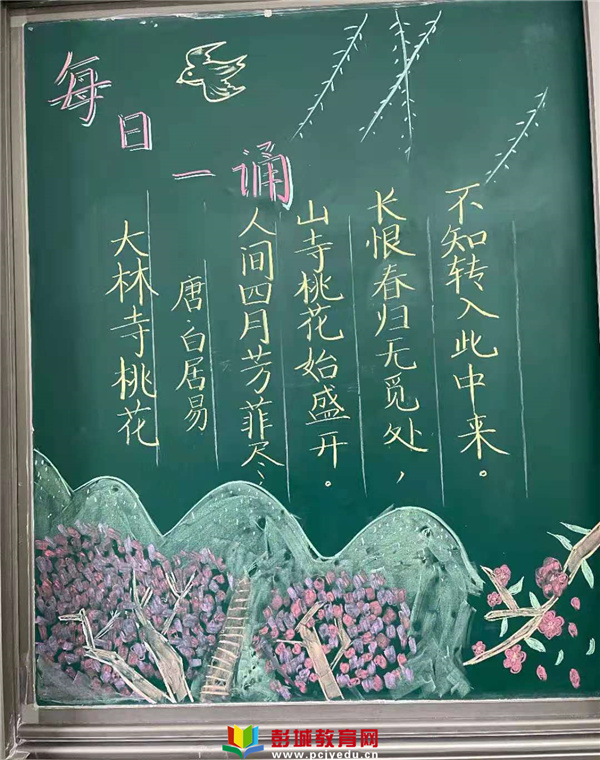 每日一诵
大林寺桃花
唐·白居易
人间四月芳菲尽，
山寺桃花始盛开。
长恨春归无觅处，
不知转入此中来。
彭城教育网
www.pcjyedu.cn